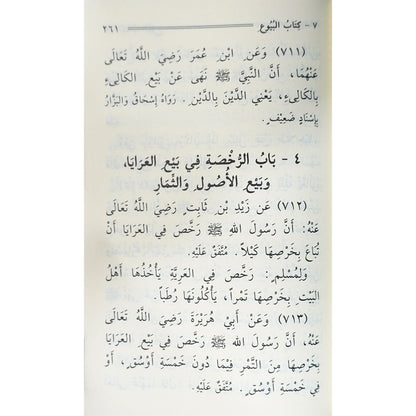 ٧ - كِتَابُ البُيُوعِ ٢٦١
(٧١١) وَعَنِ ابْنِ عُمَرَ رَضِيَ اللَّهُ تَعَالَى
عَنْهُمَا، أَنَّ النَّبِيَّ ﷺ نَهَى عَنْ بَيْعِ الكَالِىءِ
بِالكَالِىءِ، يَعْنِي الدَّيْنَ بِالدَّيْنِ. رَوَاهُ إِسْحَاقُ وَالبَزَّارُ
بِإِسْنَادٍ ضَعِيفٍ.
٤ - بَابُ الرُّخْصَةِ فِي بَيْعِ العَرَايَا،
وَبَيْعِ الأُصُولِ وَالثِّمَارِ
(٧١٢) عَنْ زَيْدِ بْنِ ثَابِتٍ رَضِيَ اللَّهُ تَعَالَى
عَنْهُ: أَنَّ رَسُولَ اللَّهِ ﷺ رَخَّصَ فِي العَرَايَا أَنْ
تُبَاعَ بِخَرْصِهَا كَيْلاً. مُتَّفَقٌ عَلَيْهِ.
وَلِمُسْلِمٍ: رَخَّصَ فِي العَرِيَّةِ يَأْخُذُهَا أَهْلُ
البَيْتِ بِخَرْصِهَا تَمْراً، يَأْكُلُونَهَا رُطَباً.
(٧١٣) وَعَنْ أَبِي هُرَيْرَةَ رَضِيَ اللَّهُ تَعَالَى
عَنْهُ، أَنَّ رَسُولَ اللَّهِ ﷺ رَخَّصَ فِي بَيْعِ العَرَايَا
بِخَرْصِهَا مِنَ التَّمْرِ فِيمَا دُونَ خَمْسَةِ أَوْسُقٍ، أَوْ
فِي خَمْسَةِ أَوْسُقٍ. مُتَّفَقٌ عَلَيْهِ.